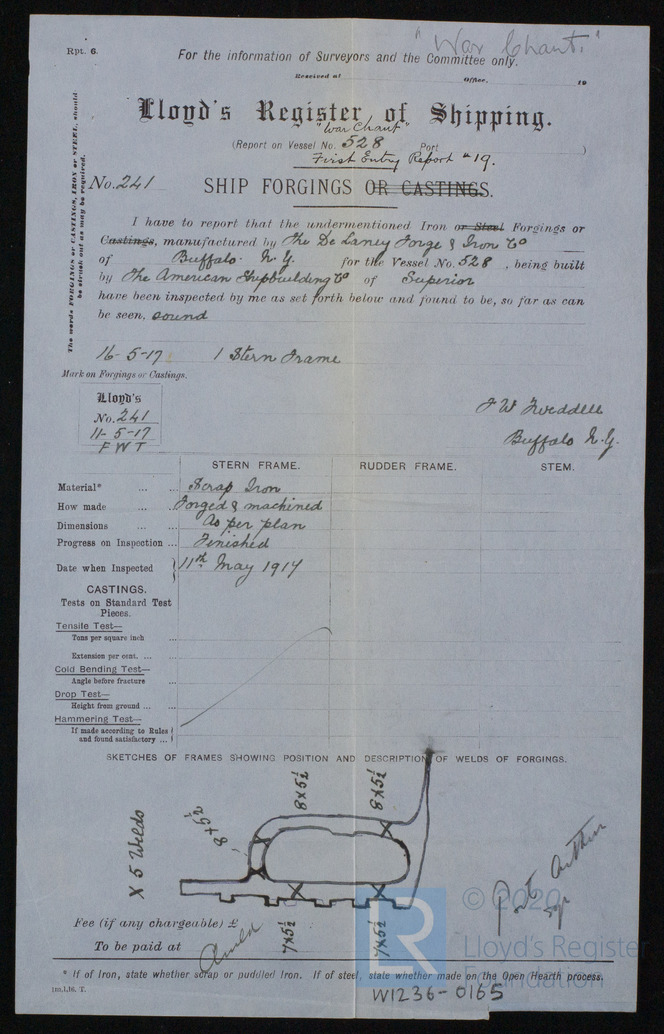 "War Chant."
Rpt. 6.
For the information of Surveyors and the Committee only.
Received at Office, 19
Lloyd's Register of Shipping.
"War Chant"
(Report on Vessel No. 528 Port )
First Entry Report # 19.
The words FORGINGS or CASTINGS, IRON or STEEL, should be struck out as may be required.
No. 241 SHIP FORGINGS OR CASTINGS.
I have to report that the undermentioned Iron or Steel Forgings or
Castings, manufactured by The De Laney Forge & Iron Co
of Buffalo N.Y. for the Vessel No. 528, being built
by The American Shipbuilding Co of Superior
have been inspected by me as set forth below and found to be, so far as can
be seen, sound
16-5-17 1 Stern Frame
Mark on Forgings or Castings.
Lloyd's
No. 241
11-5-17
F W T
F W Tweddell
Buffalo N.Y.
STERN FRAME. RUDDER FRAME. STEM.
Material* ... ... Scrap Iron
How made ... Forged & machined
Dimensions ... As per plan
Progress on Inspection ... Finished
Date when Inspected 11th May 1917
CASTINGS.
Tests on Standard Test
Pieces.
Tensile Test—
Tons per square inch ...
Extension per cent. ... ...
Cold Bending Test—
Angle before fracture ...
Drop Test—
Height from ground ... ...
Hammering Test—
If made according to Rules
and found satisfactory ...
SKETCHES OF FRAMES SHOWING POSITION AND DESCRIPTION OF WELDS OF FORGINGS.
X 5 Welds
8 x 5½
8 x 5½
8 x 5½
7 x 5½
7 x 5½
Port Arthur
Fee (if any chargeable) £
To be paid at
* If of Iron, state whether scrap or puddled Iron. If of steel, state whether made on the Open Hearth process.
1m.1.16. T.
W1236-0165
© 2020
Lloyd's Register
Foundation